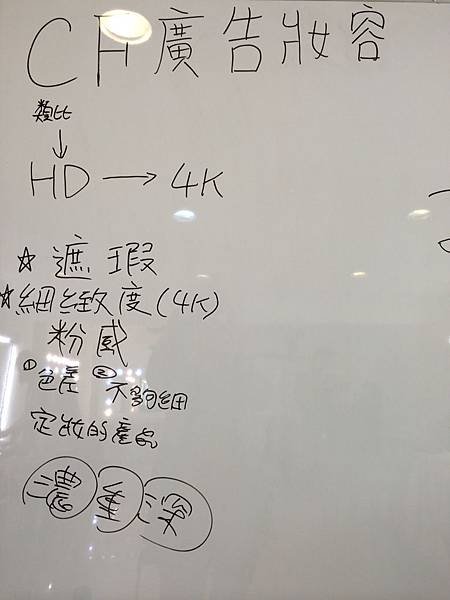 CF廣告妝容
類比
↓
HD → 4K
☆遮瑕
☆細緻度(4K)
粉感
①色差 ②不夠細
定妝的產品
濃 重 深